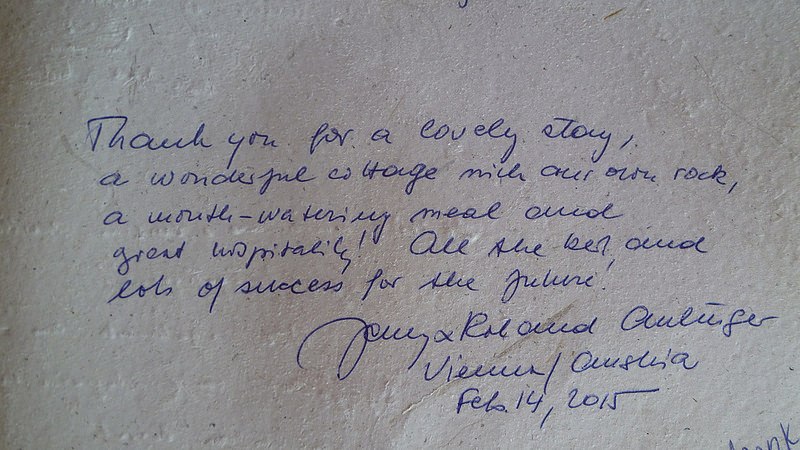 Thank you for a lovely stay,
a wonderful cottage with our own rock,
a mouth-watering meal and
great hospitality! All the best, and
lots of success for the future!
& Roland
Vienna/Austria
Feb. 14, 2015